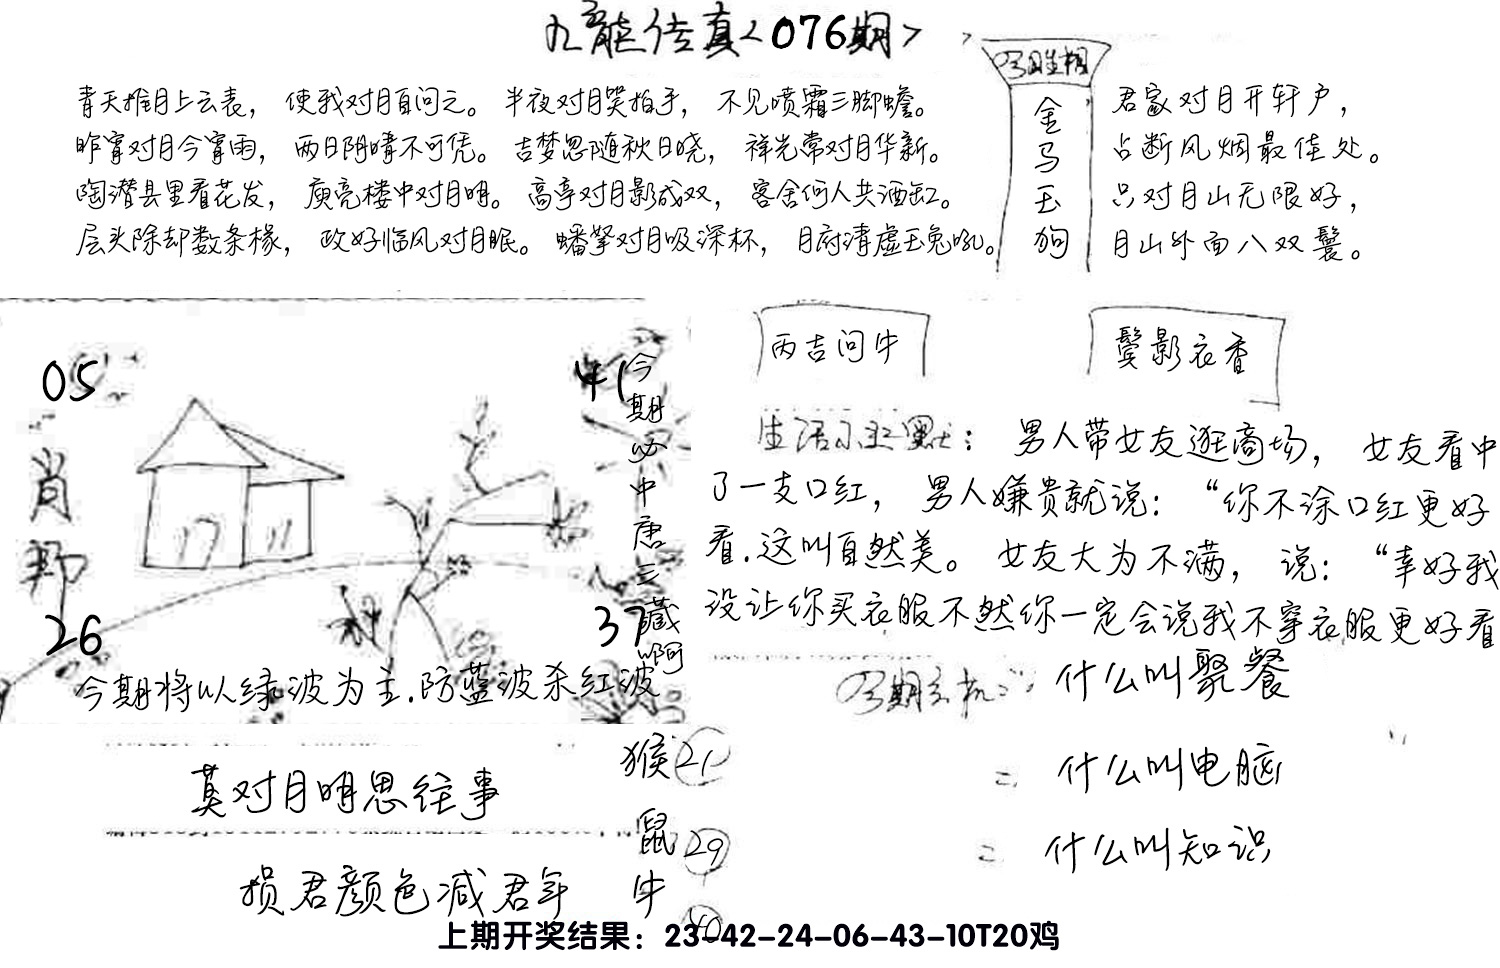 九龍传真<076期>
今期生相
金马玉狗
青天推月上云表， 使我对月百问之。 半夜对月笑拍手， 不见喷霜三脚蟾。
昨宵对月今宵雨， 两日阴晴不可凭。 吉梦忽随秋日晓， 祥光常对月华新。
陶潜县里看花发， 庾亮楼中对月明。 高亭对月影成双， 客舍何人共酒缸。
层头除却数条椽， 政好临风对月眠。 蟠拏对月吸深杯， 月府清虚玉兔吼。
君家对月开轩户，
占断风烟最佳处。
只对月山无限好，
月山外面八双鬟。
05
41
肖
26
37
今期必中唐三藏啊
今期将以绿波为主.防蓝波杀红波
丙吉问牛
鬓影衣香
生活小幽默： 男人带女友逛商场， 女友看中
了一支口红， 男人嫌贵就说：“你不涂口红更好
看.这叫自然美。 女友大为不满， 说：“幸好我
没让你买衣服不然你一定会说我不穿衣服更好看
今期玄机：什么叫聚餐
什么叫电脑
什么叫知识
莫对月明思往事
损君颜色减君年
猴 21
鼠 29
牛 40
上期开奖结果：23-42-24-06-43-10T20鸡